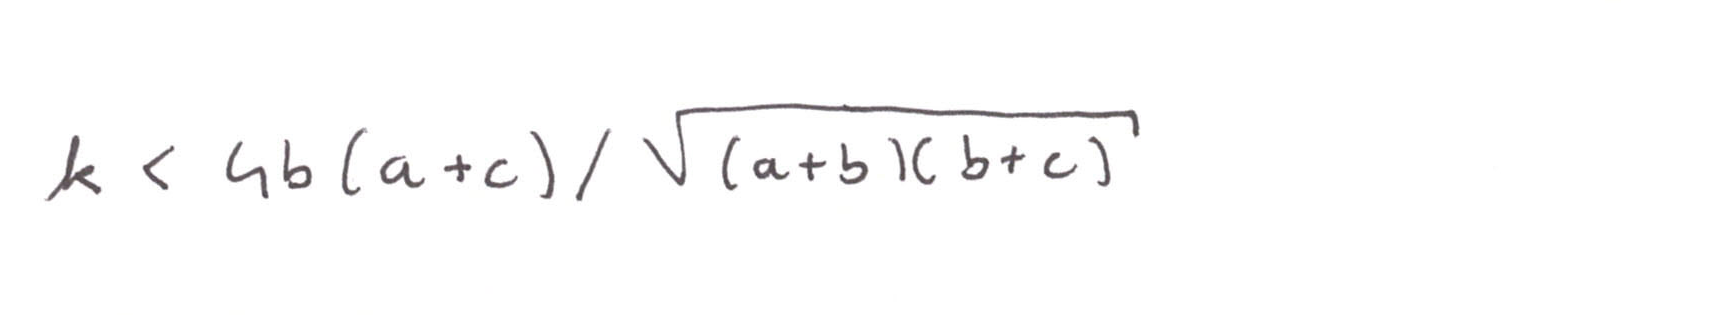 k < 4b(a+c)/√((a+b)(b+c))